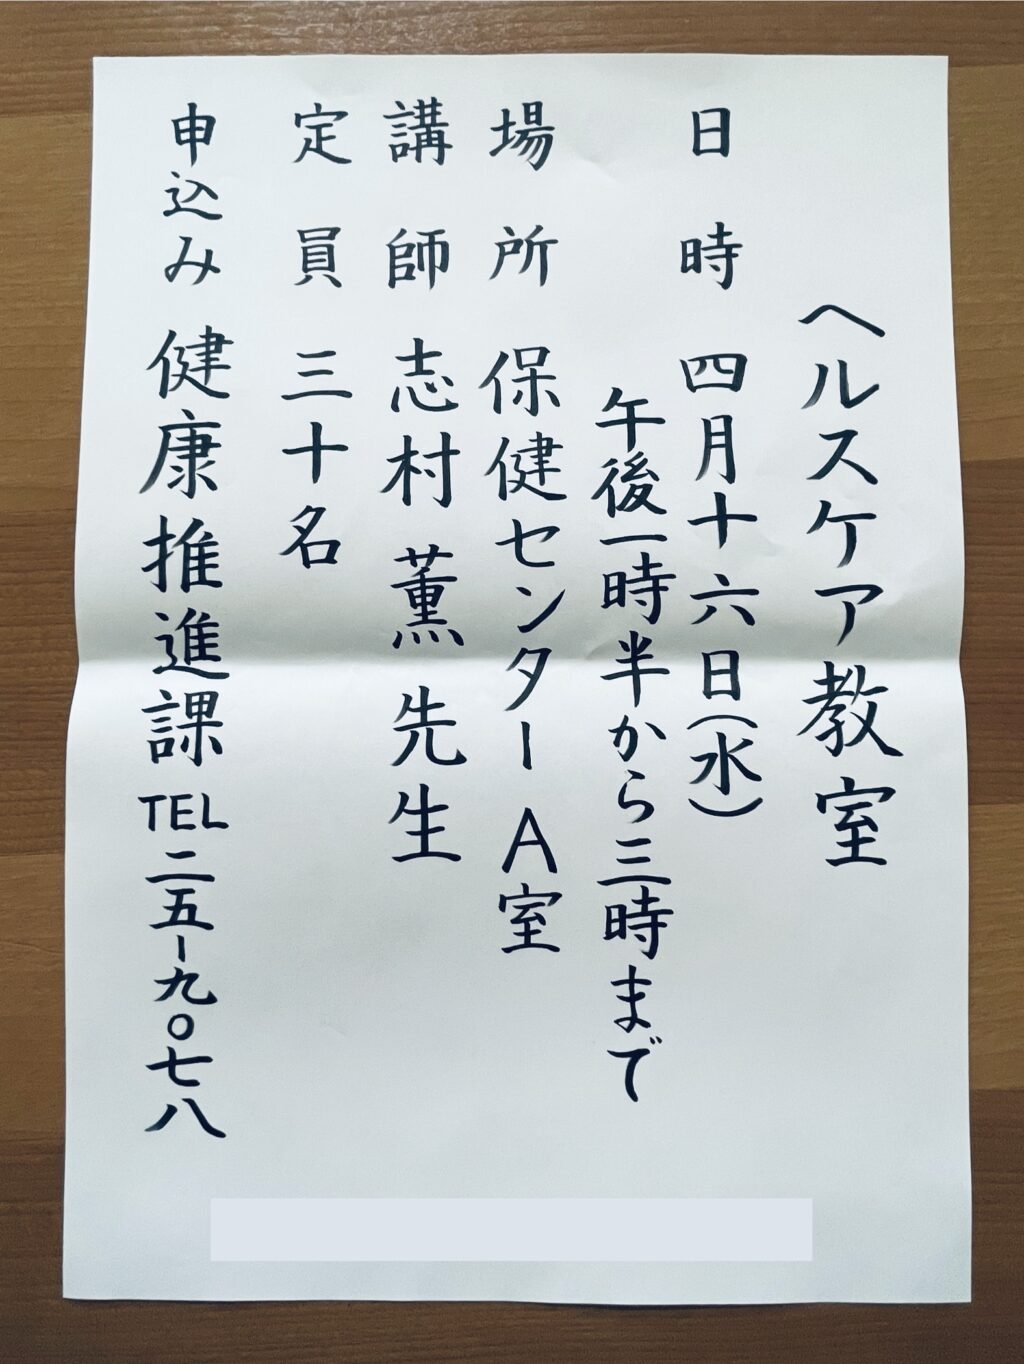 ヘルスケア教室
日時 四月十六日(水)
午後一時半から三時まで
場所 保健センターA室
講師 志村 薫 先生
定員 三十名
申込み 健康推進課 TEL 二五-九〇七八